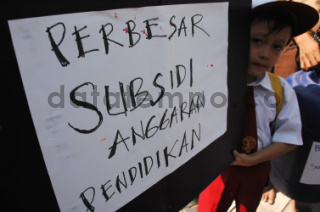 PERBESAR
SUBSIDI
ANGGARAN
PENDIDIKAN
datatempo.co